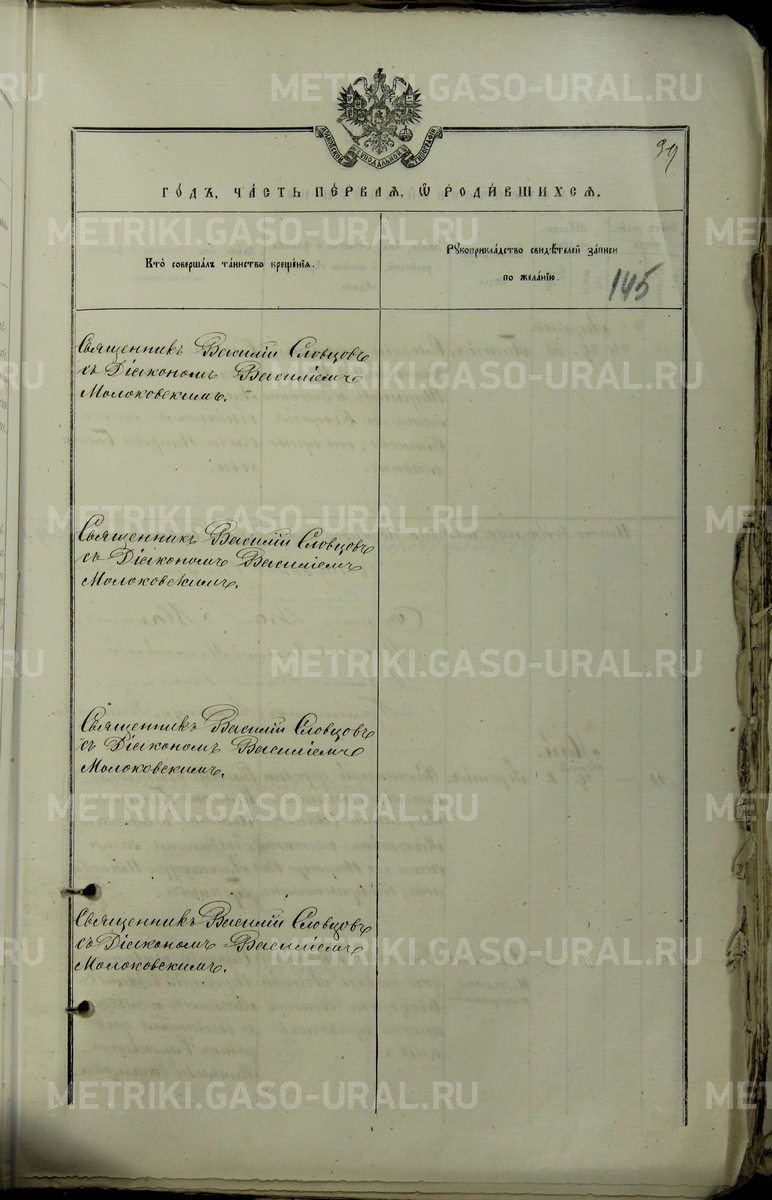 METRIKI.GASO-URAL.RU
39
ГО́ДЪ, ЧА́СТЬ ПЕ́РВАѦ, Ѿ РОДИ́ВШИХСѦ.
Кто̀ соверша́лъ та́инство креще́нїѧ.
Рꙋкоприкла́дство свидѣ́телей за́писи
по жела́нїю.
145
Священникъ Василій Словцовъ
съ Діакономъ Василіемъ
Молоковскимъ.
Священникъ Василій Словцовъ
съ Діакономъ Василіемъ
Молоковскимъ.
METRIKI.GASO-URAL.RU
Священникъ Василій Словцовъ
съ Діакономъ Василіемъ
Молоковскимъ.
METRIKI.GASO-URAL.RU
Священникъ Василій Словцовъ
съ Діакономъ Василіемъ
Молоковскимъ.
METRIKI.GASO-URAL.RU